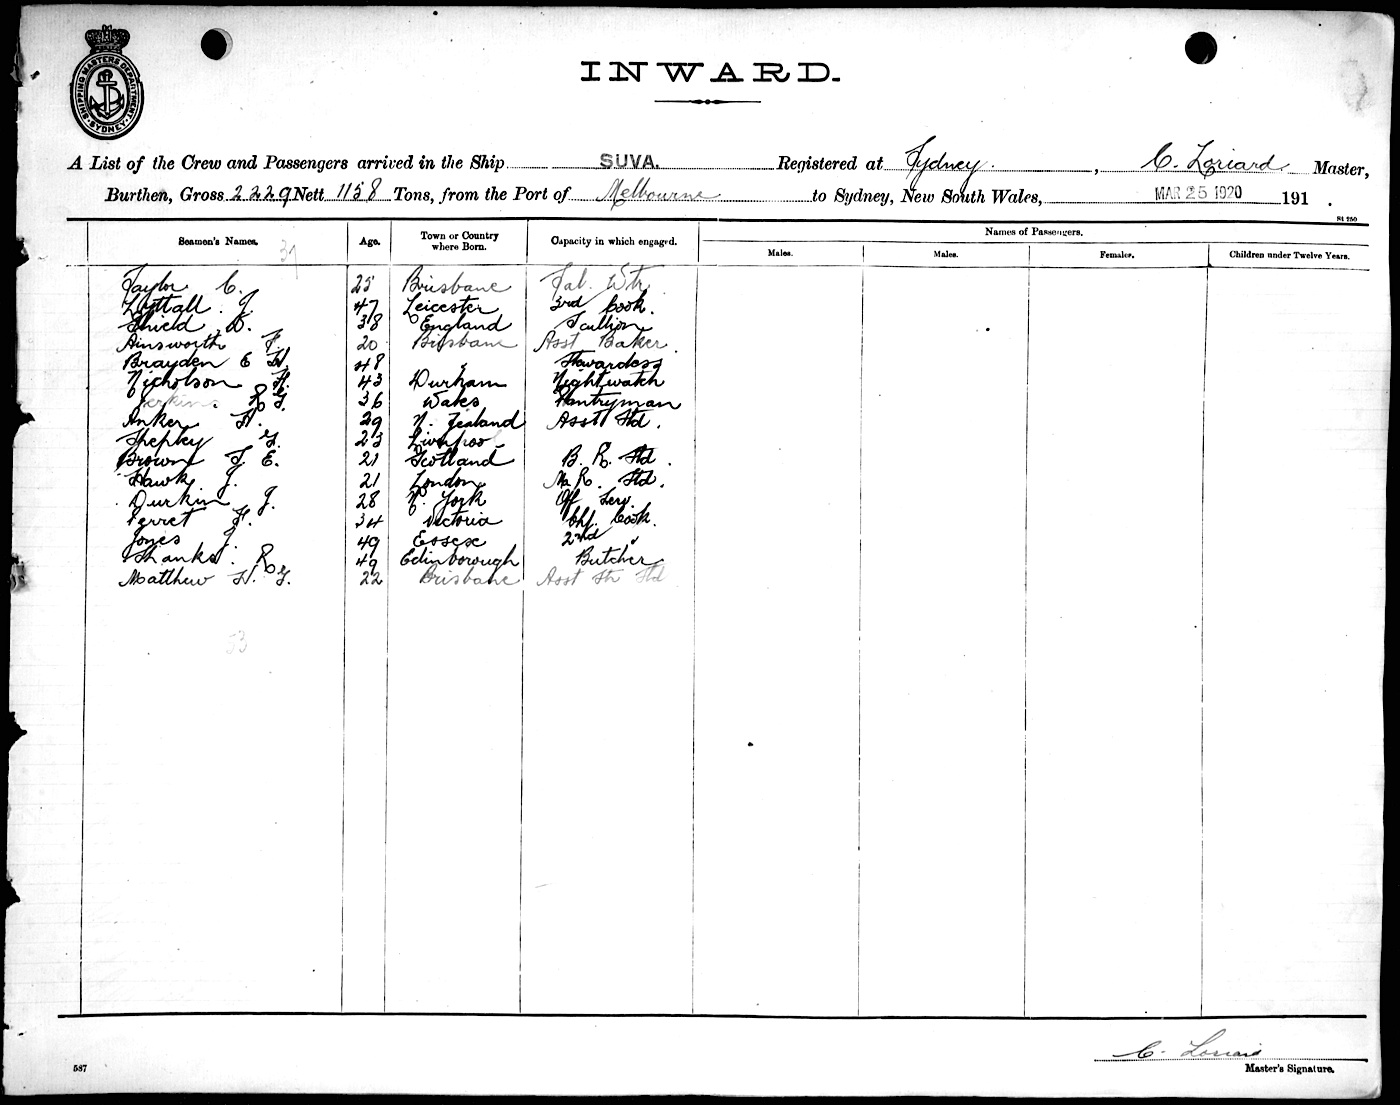 SHIPPING MASTERS DEPARTMENT SYDNEY
INWARD.
A List of the Crew and Passengers arrived in the Ship SUVA. Registered at Sydney. , C. Loriard Master,
Burthen, Gross 2229 Nett 1158 Tons, from the Port of Melbourne to Sydney, New South Wales, MAR 25 1920 191 .
St 250
Seamen's Names. Age. Town or Country where Born. Capacity in which engaged. Names of Passengers.
Males. Males. Females. Children under Twelve Years.
31
Taylor C. 25 Brisbane Sal. Wtr
Lyttall J. 47 Leicester 3rd Cook.
Shield D. 38 England Scullion
Ainsworth F. 20 Brisbane Asst Baker
Brayden E 48 Stewardess
Nicholson H. 43 Durham Nightwatch
R G. 36 Wales Pantryman
Anker H. 29 N. Zealand Asst Std.
Shepley G. 23 Liverpool
Brown J. E. 21 Scotland B. R. Std.
Hawk J. 21 London M R. Std.
Durkin J. 28 N. York Off Serv.
Ferret F. 34 Victoria Chf. Cook.
Jones J. 49 Essex 2nd "
Shanks. R 49 Edinborough Butcher
Matthew H. G. 22 Brisbane Asst Std
53
C. Loriard
587
Master's Signature.